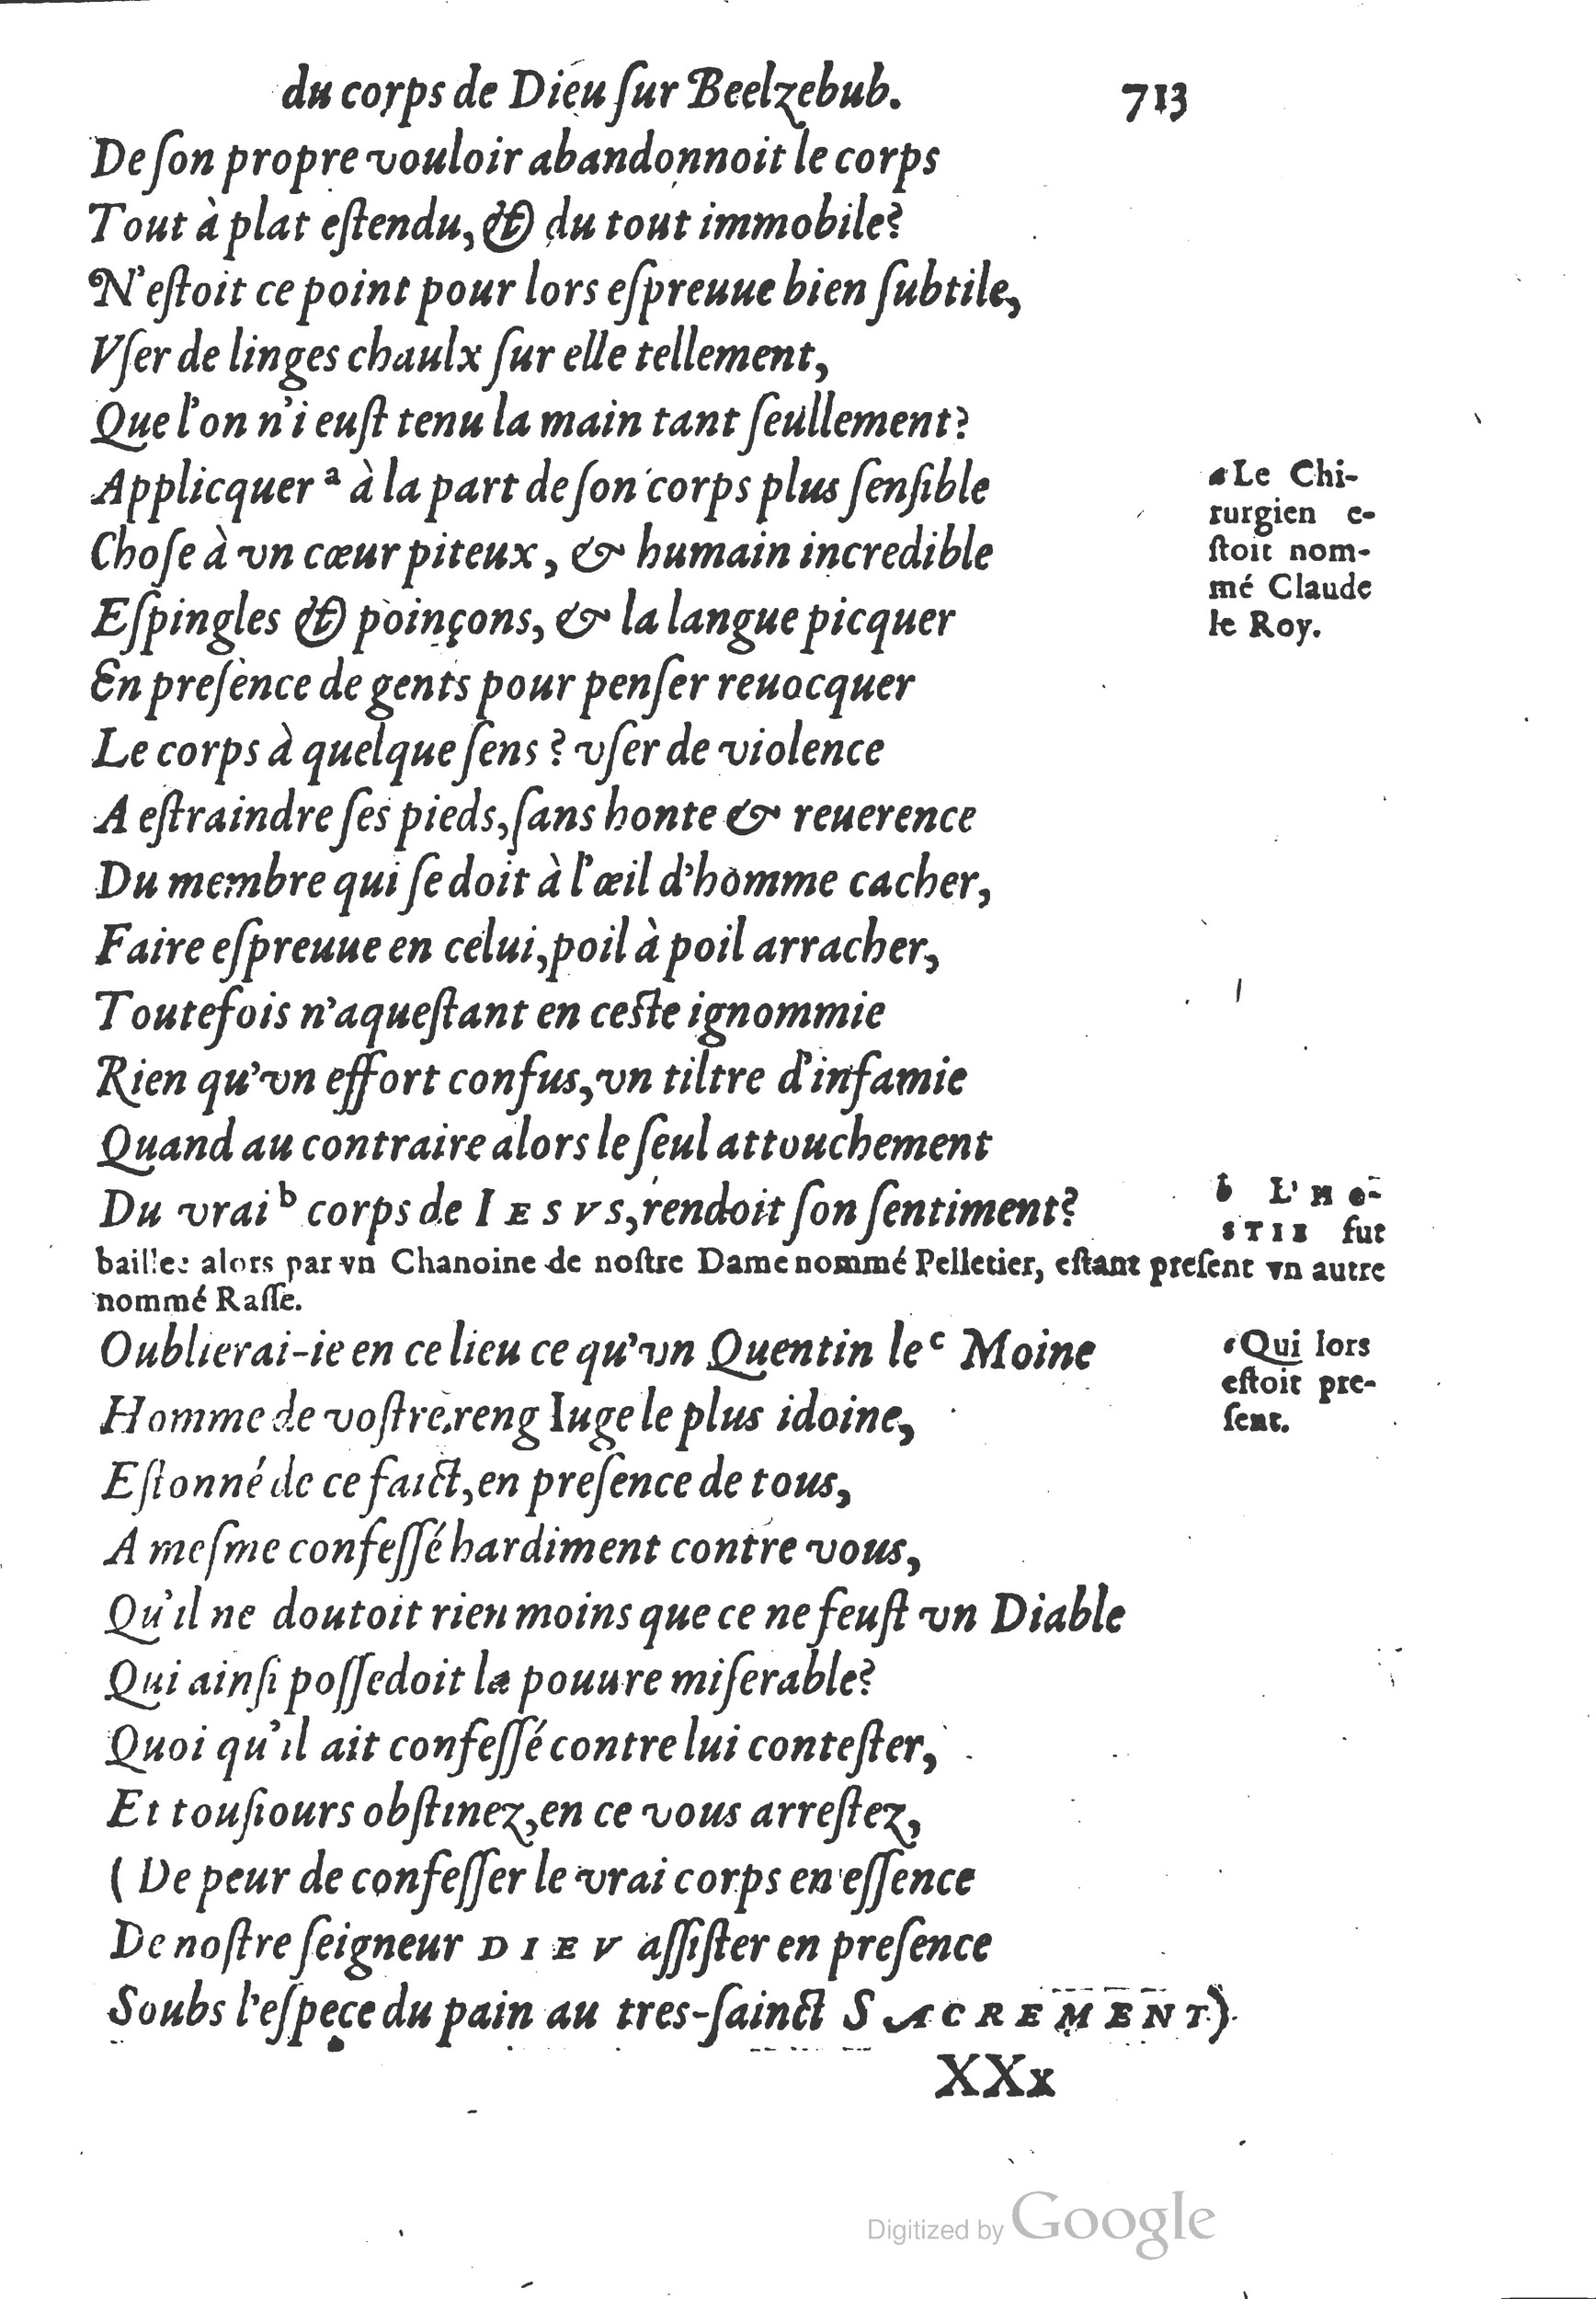 du corps de Dieu ſur Beelzebub. 713
De ſon propre vouloir abandonnoit le corps
Tout à plat eſtendu, & du tout immobile?
N'eſtoit ce point pour lors eſpreuue bien ſubtile,
Vſer de linges chaulx ſur elle tellement,
Que l'on n'i euſt tenu la main tant ſeullement?
Applicquer a à la part de ſon corps plus ſenſible
Choſe à vn cœur piteux, & humain incredible
Eſpingles & poinçons, & la langue picquer
En preſence de gents pour penſer reuocquer
Le corps à quelque ſens? vſer de violence
A eſtraindre ſes pieds, ſans honte & reuerence
Du membre qui ſe doit à l'œil d'homme cacher,
Faire eſpreuue en celui, poil à poil arracher,
Toutefois n'aqueſtant en ceſte ignommie
Rien qu'vn effort confus, vn tiltre d'infamie
Quand au contraire alors le ſeul attouchement
Du vrai b corps de IESVS, rendoit ſon ſentiment?
a Le Chi-
rurgien e-
ſtoit nom-
mé Claude
le Roy.
b L'HO-
STIE fut
baillee alors par vn Chanoine de noſtre Dame nommé Pelletier, eſtant preſent vn autre
nommé Raſſe.
Oublierai-ie en ce lieu ce qu'vn Quentin le c Moine
Homme de voſtre reng Iuge le plus idoine,
Eſtonné de ce faict, en preſence de tous,
A meſme confeſſé hardiment contre vous,
Qu'il ne doutoit rien moins que ce ne feuſt vn Diable
Qui ainſi poſſedoit la pouure miſerable?
Quoi qu'il ait confeſſé contre lui conteſter,
Et touſiours obſtinez, en ce vous arreſtez,
(De peur de confeſſer le vrai corps en eſſence
De noſtre ſeigneur DIEV aſſiſter en preſence
Soubs l'eſpece du pain au tres-ſainct SACREMENT)
c Qui lors
eſtoit pre-
ſent.
XXx
Digitized by Google